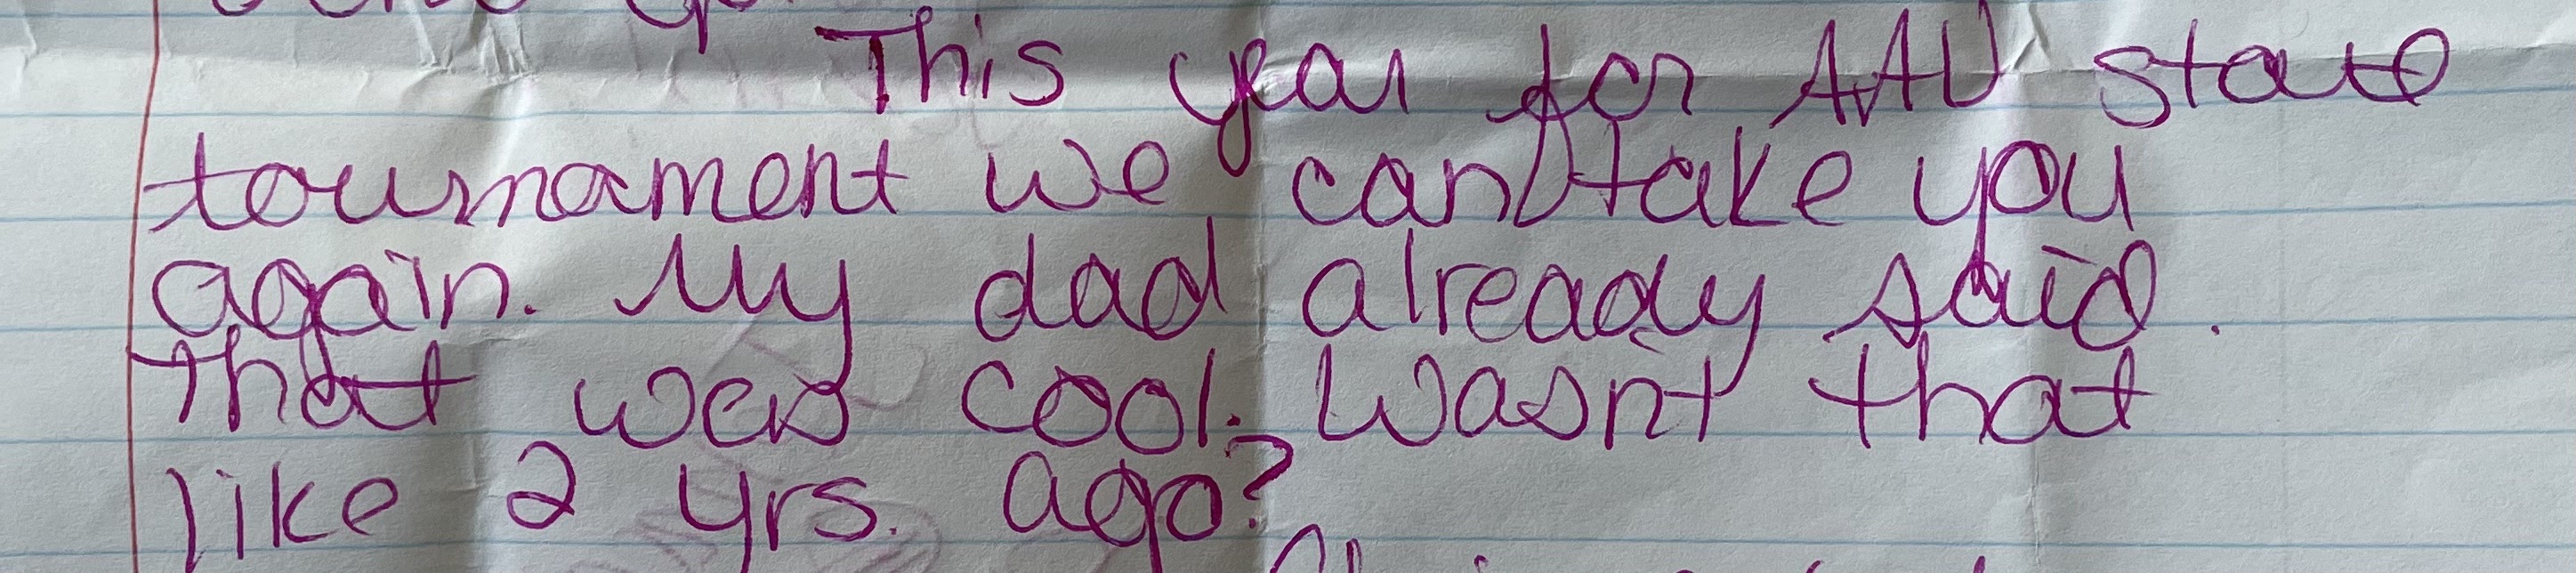 This year for AAU state
tournament we can take you
again. My dad already said.
that was cool. Wasnt that
like 2 yrs. ago?